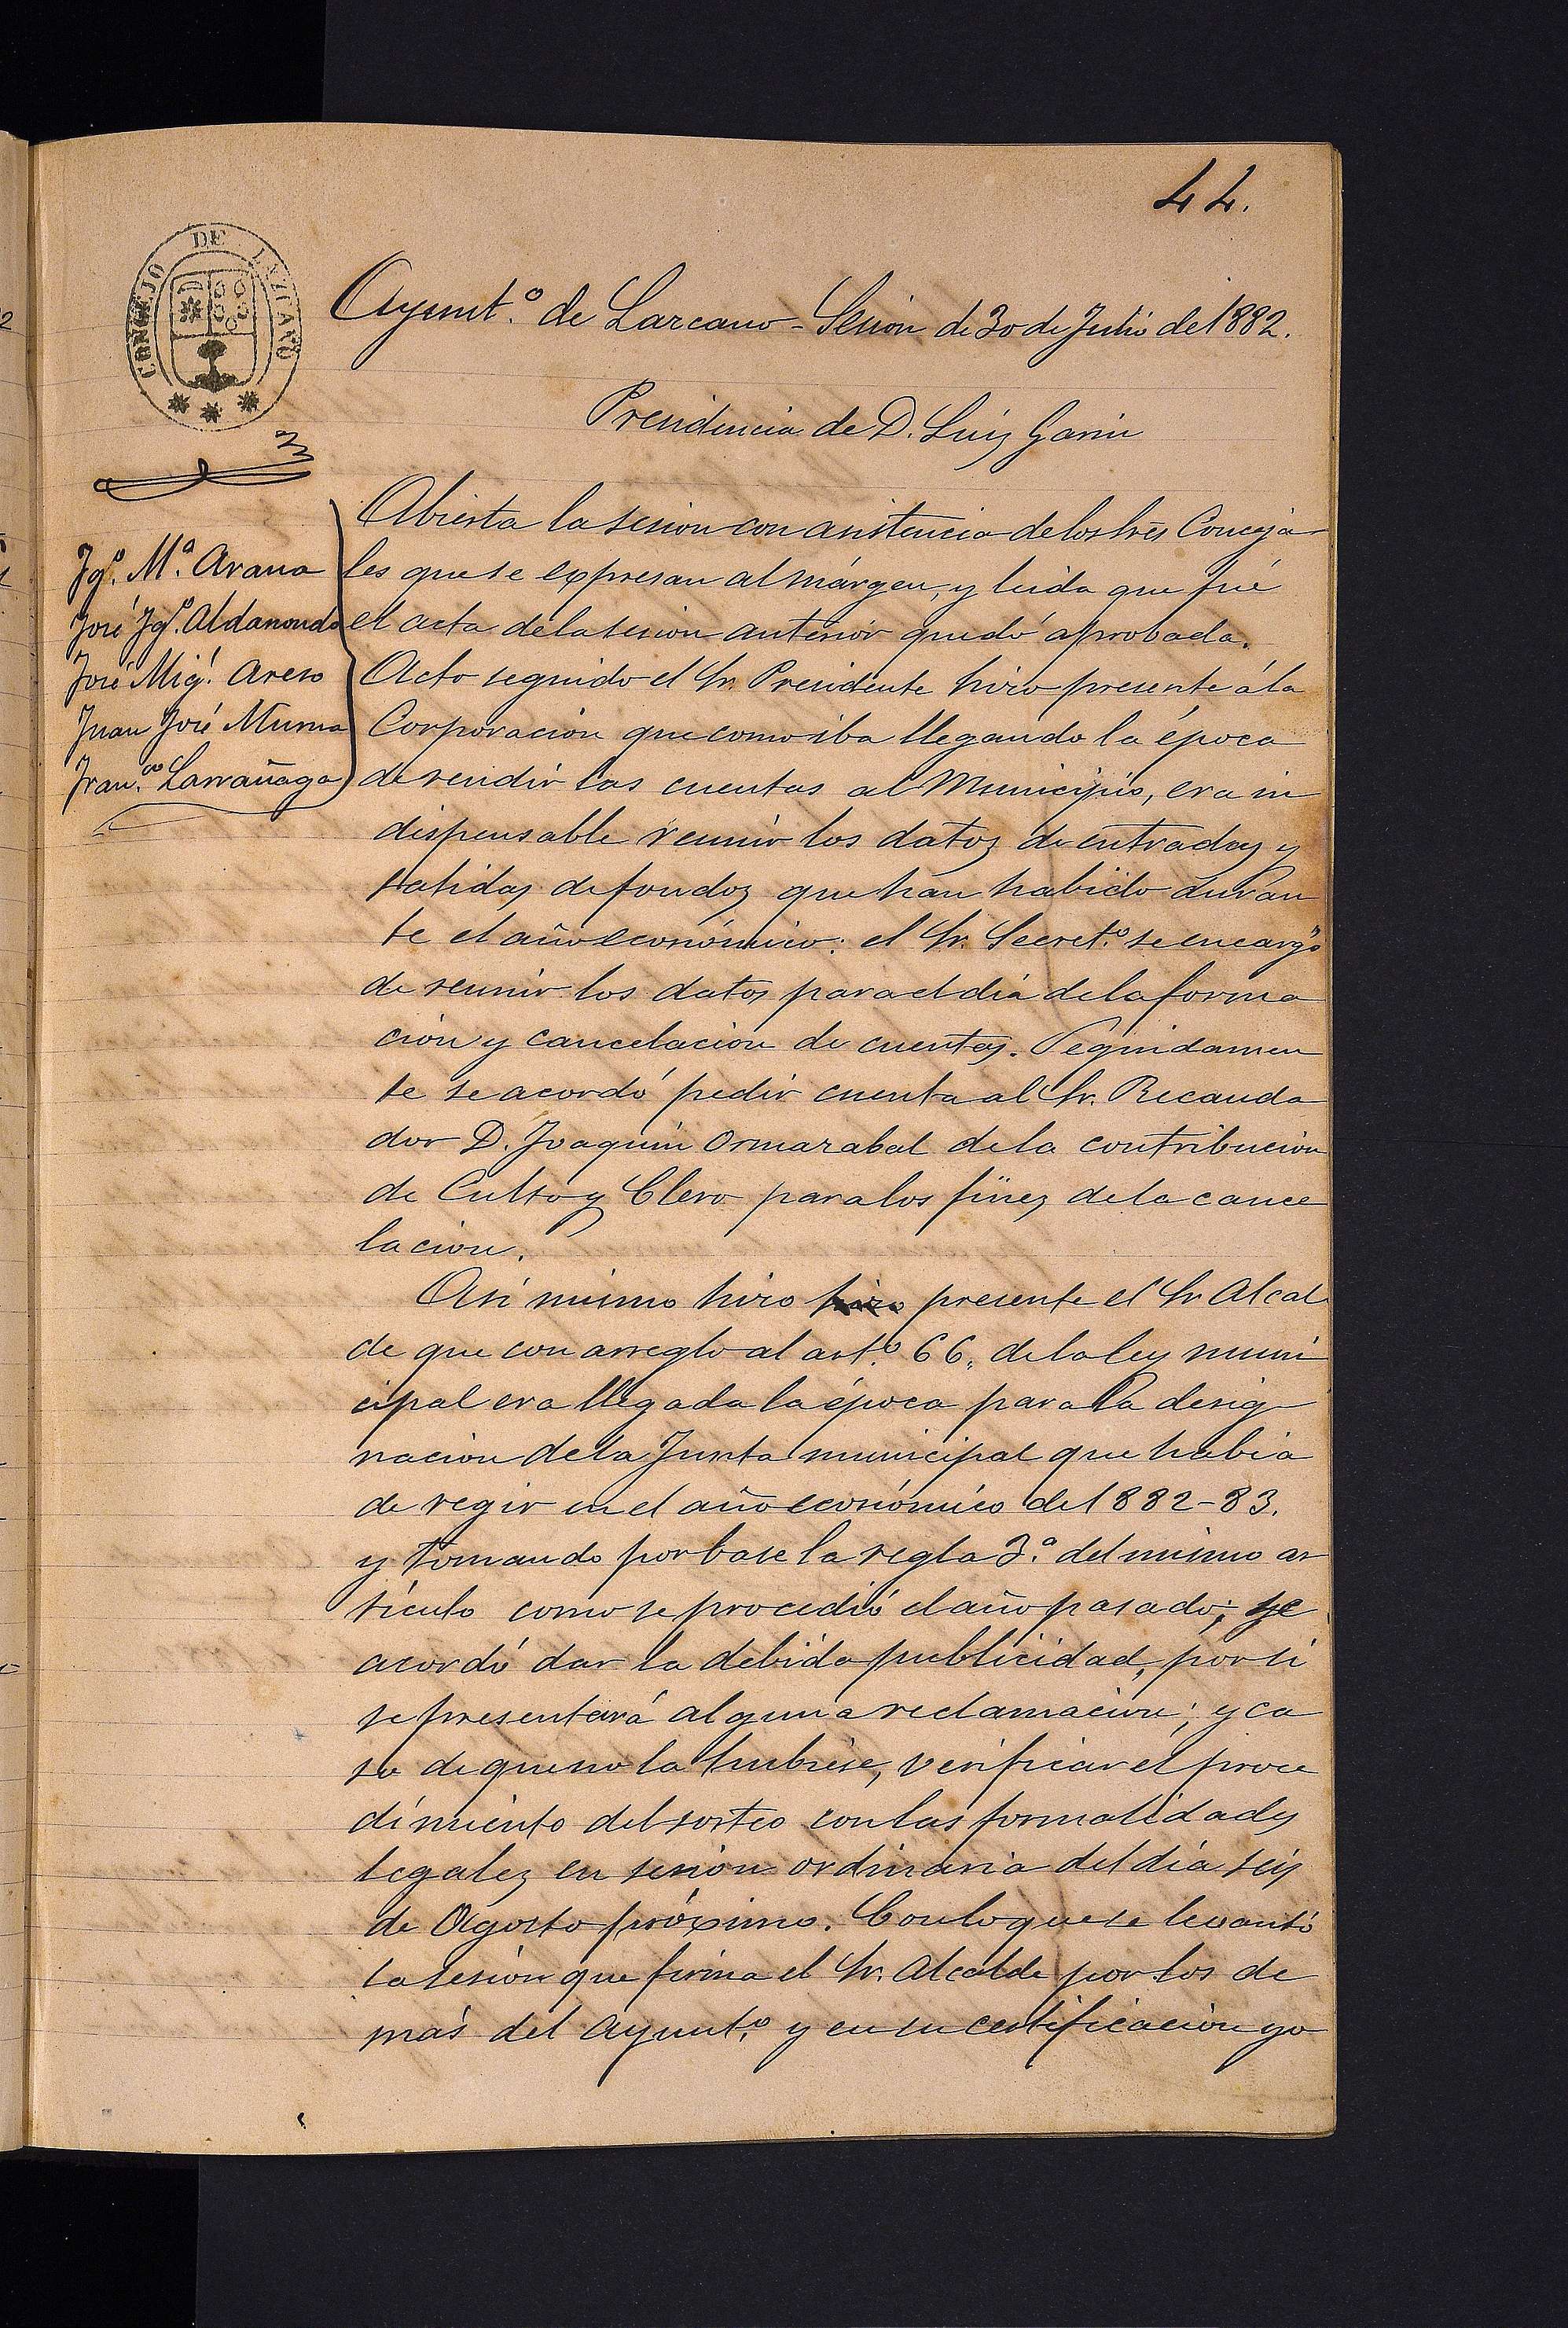 44.
CONCEJO DE LAZCANO
Ayunt.º de Lazcano - Sesion de 30 de Julio de 1882.
Presidencia de D. Luiz Garin
Jg.º M.ª Arana
José Jg.º Aldanondo
José Mig.l Areso
Juan José Murua
Fran.co Larrañaga
Abierta la sesion con asistencia de los Sres Conceja
les que se expresan al márgen, y leida que fué
el acta de la sesion anterior quedó aprobada.
Acto seguido el Sr. Presidente hizo presente á la
Corporacion que como iba llegando la época
de rendir las cuentas al Municipio, era in
dispensable reunir los datos de entradas y
salidas de fondos que han habido duran
te el año económico: el Sr. Secret.º se encargó
de reunir los datos para el dia de la forma
cion y cancelacion de cuentas. Seguidamen
te se acordó pedir cuenta al Sr. Recauda
dor D. Joaquin Ormazabal de la contribucion
de Culto y Clero para los fines de la cance
lacion.
Asi mismo hizo hizo presente el Sr. Alcal
de que con arreglo al art.º 66, de la ley muni
cipal era llegada la época para la desig
nacion de la Junta municipal que habia
de regir en el año económico de 1882-83.
y tomando por base la regla 3.ª del mismo ar
tículo como se procedió el año pasado; se
acordó dar la debida publicidad, por si
se presentará alguna reclamacion; y ca
so de que no la hubiese, verificar el proce
dimiento del sorteo con las formalidades
legales en sesion ordinaria del dia seis
de Agosto próximo. Con lo que se levantó
la sesion que firma el Sr. Alcalde por los de
más del Ayunt.º y en su certificacion yo